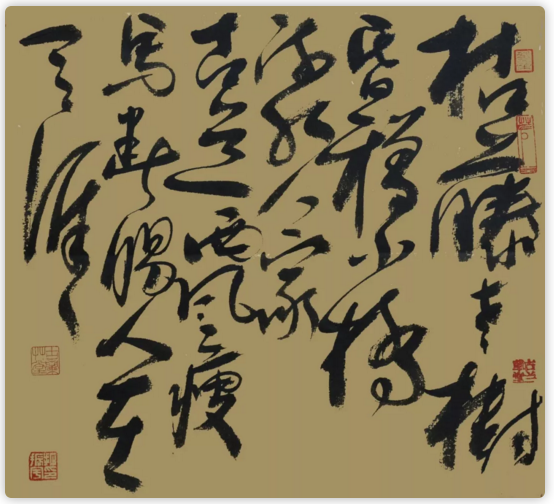 枯藤老樹
昏鴉小橋
流水人家
古道西風瘦
馬斷腸人在
天涯